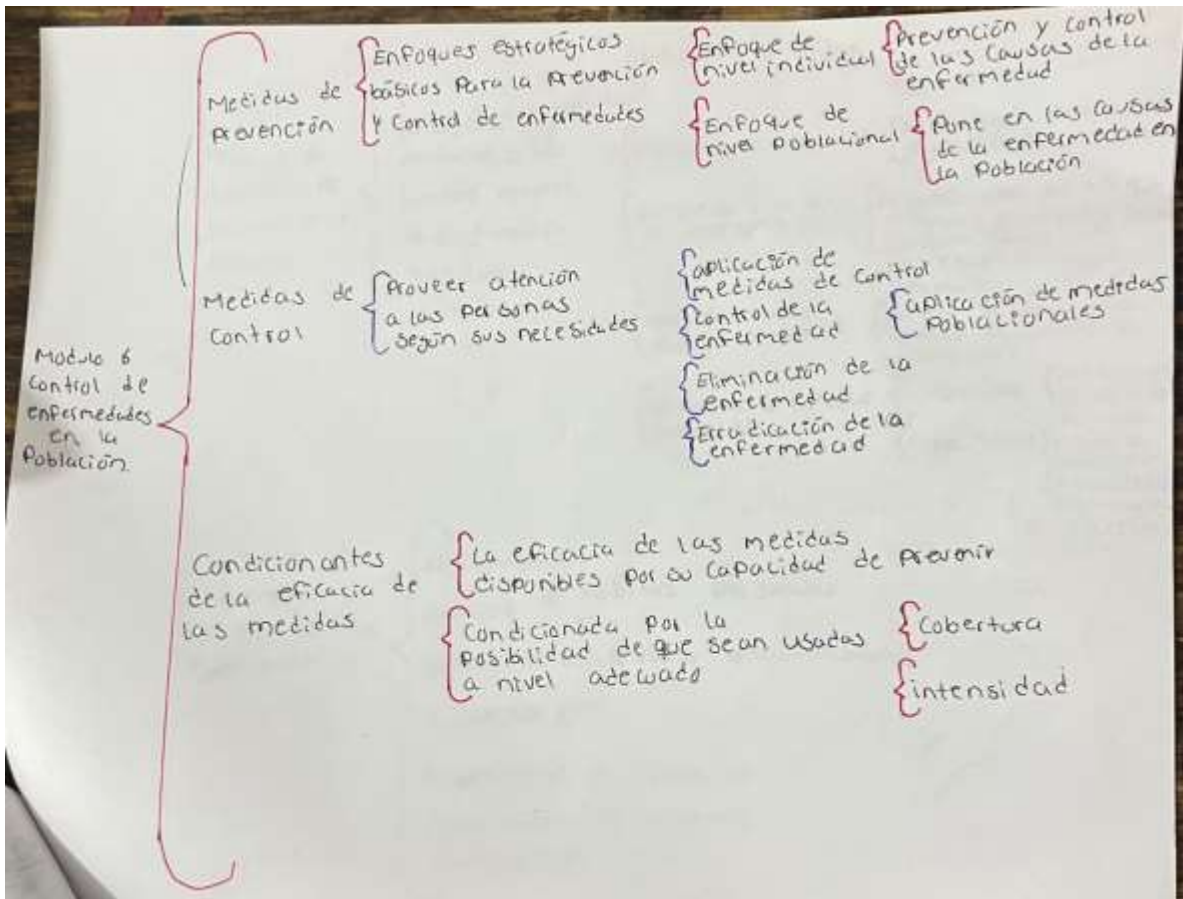 Modulo 6
Control de
enfermedades
en la
Población.
Medidas de
Prevención
Enfoques estratégicos
básicos Para la Prevención
y Control de enfermedades
Enfoque de
nivel individual
Prevención y Control
de las Causas de la
enfermedad
Enfoque de
nivel Poblacional
Pone en las Causas
de la enfermedad en
la Población
Medidas de
Control
Proveer atención
a las Personas
Según sus necesidades
aplicación de
medidas de Control
Control de la
enfermedad
aplicación de medidas
Poblacionales
Eliminación de la
enfermedad
Erradicación de la
enfermedad
Condicionantes
de la eficacia de
las medidas
La eficacia de las medidas
disponibles por su Capacidad de Prevenir
Condicionada por la
Posibilidad de que sean usadas
a nivel adecuado
Cobertura
intensidad